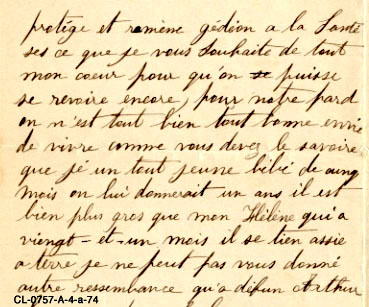 protége et ramène gédéon a la Santé
ses ce que je vous souhaite de tout
mon coeur pour qu'on se puisse
se revoire encore, pour notre pard
on n'est tout bien tout bonne envie
de vivre comme vous devez le savoire
que jé un tout jeune bébé de oung
mois on lui donnerait un ans il est
bien plus gros que mon Hélène qui a
viengt-et-un mois il se tien assie
a terre je ne peut pas vous donné
autre ressembance qu'a défun Arthur
CL-0757-A-4-a-74